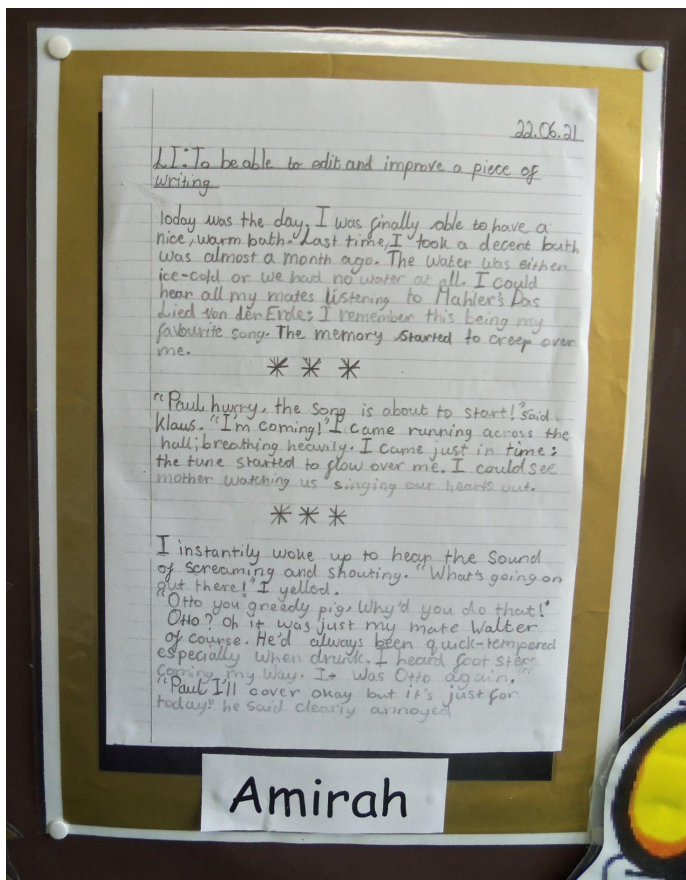 22.06.21
LI: To be able to edit and improve a piece of
writing
Today was the day. I was finally able to have a
nice, warm bath. Last time, I took a decent bath
was almost a month ago. The water was either
ice-cold or we had no water at all. I could
hear all my mates listening to Mahler's Das
Lied von der Erde; I remember this being my
favourite song. The memory started to creep over
me.
"Paul hurry, the song is about to start!" said
Klaus. "I'm coming!" I came running across the
hall; breathing heavily. I came just in time:
the tune started to flow over me. I could see
mother watching us singing our hearts out.
I instantily woke up to hear the sound
of screaming and shouting. "What's going on
out there!" I yelled.
"Otto you greedy pig. Why'd you do that!"
Otto? Oh it was just my mate Walter
of course. He'd always been quick-tempered
especially when drunk. I heard foot steps
coming my way. It was Otto again.
"Paul I'll cover okay but it's just for
today." he said clearly annoyed
Amirah